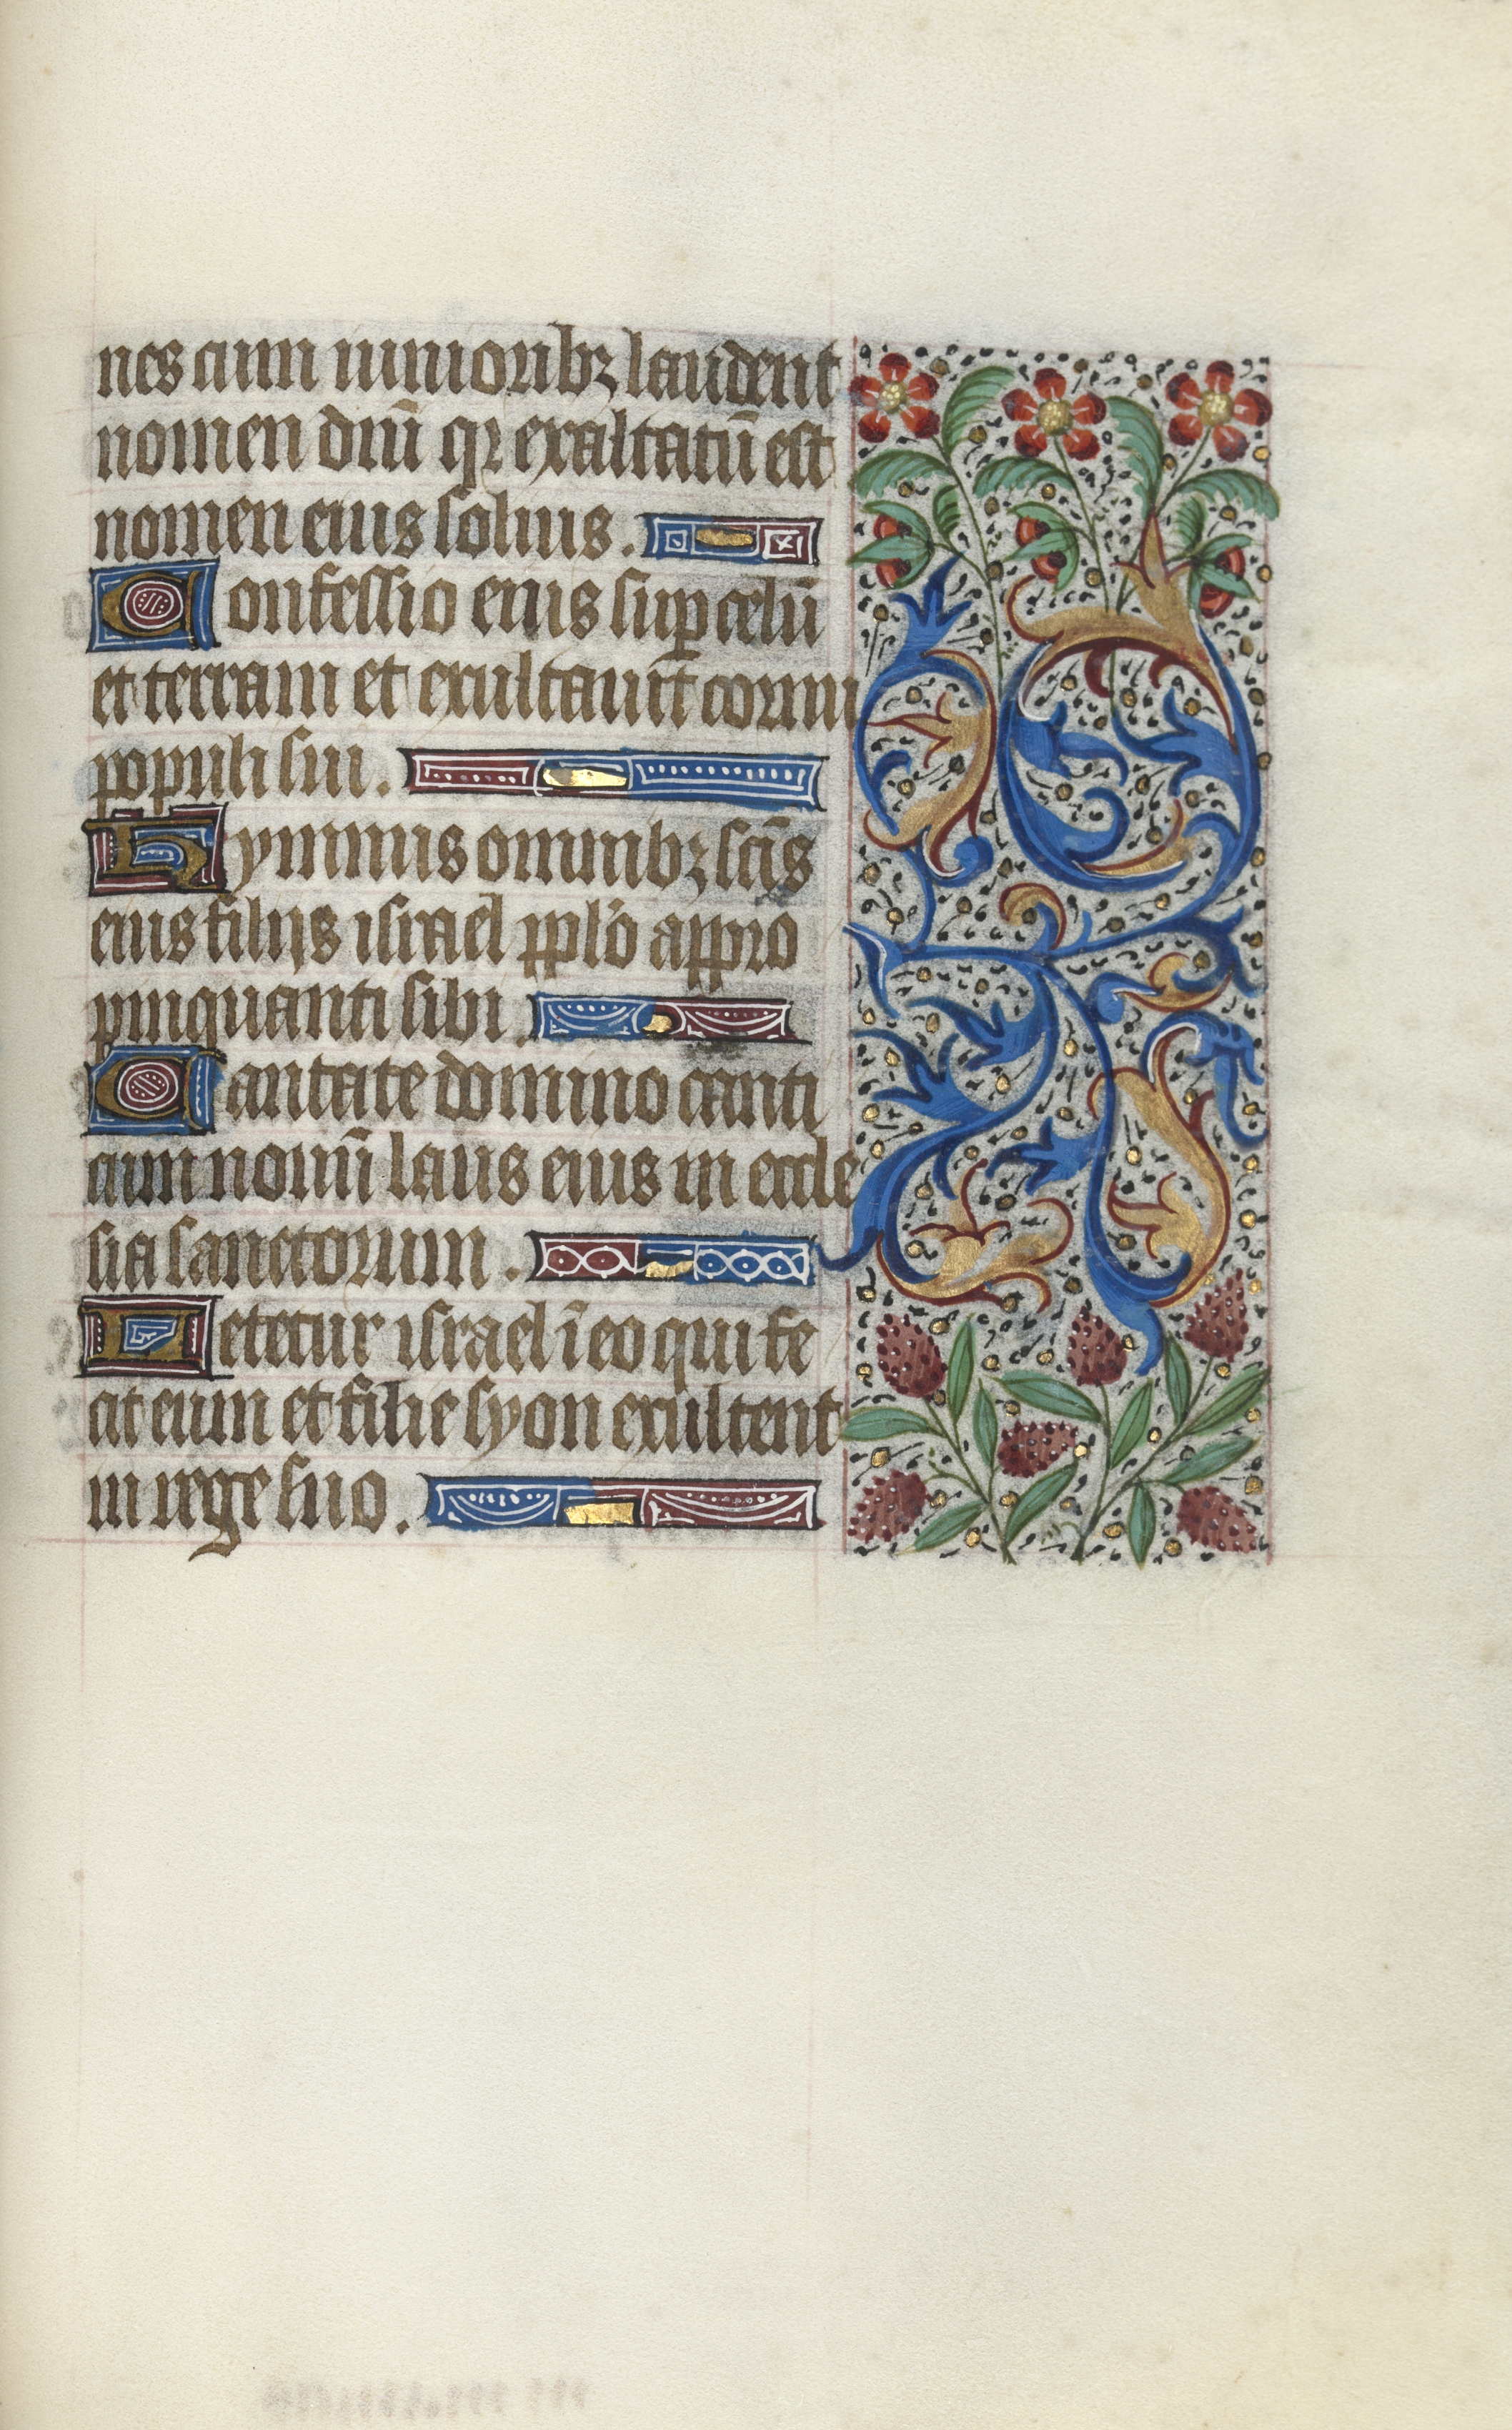 nes cum iunioribꝫ laudent
nomen dn̄i qꝛ exaltatū est
nomen eius solius.
Confessio eius suꝑ celū
et terram et exultauit cornu
populi sui.
Hymnus omnibꝫ sc̄is
eius filijs israel pplo appro
pinquanti sibi.
Cantate domino canti
cum nouū laus eius in eccle
sia sanctorum.
Letetur israel ī eo qui fe
cit eum et filie syon exultent
in rege suo.